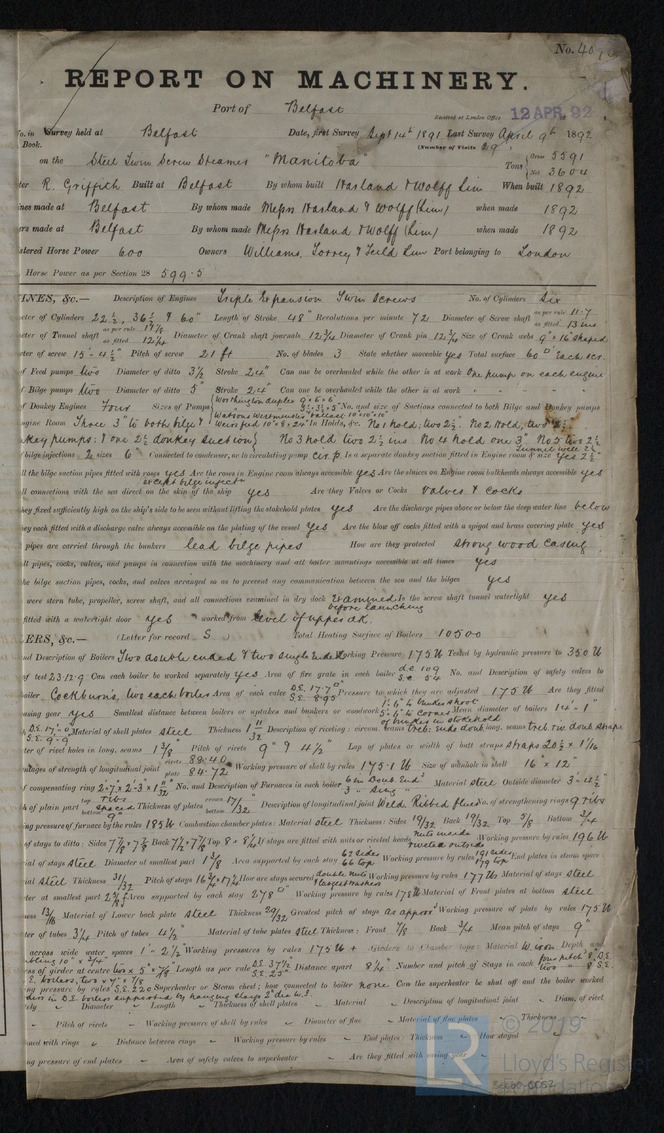 No. 40
REPORT ON MACHINERY.
Port of Belfast
Received at London Office 12 APR. 92
No. in Survey held at Belfast Date, first Survey Sept 14th 1891 Last Survey April 9th 1892
Book. (Number of Visits 29)
on the Steel Twin Screw Steamer "Manitoba" Tons { Gross 5591
Net 3604
R. Griffith Built at Belfast By whom built Harland & Wolff Lim When built 1892
made at Belfast By whom made Messrs Harland & Wolff (Lim) when made 1892
made at Belfast By whom made Messrs Harland & Wolff (Lim) when made 1892
Horse Power 600 Owners Williams, Torrey & Feild Lim Port belonging to London
Horse Power as per Section 28 599.5
INES, &c.— Description of Engines Triple Expansion Twin Screws No. of Cylinders Six
of Cylinders 22½, 36½ & 60" Length of Stroke 48" Revolutions per minute 72 Diameter of Screw shaft as per rule 11.7
as fitted 13 ins
of Tunnel shaft as fitted 12¼ Diameter of Crank shaft journals 12¾ Diameter of Crank pin 12¾ Size of Crank webs 9" × 16" shaped
of screw 15'-4½" Pitch of screw 21 ft No. of blades 3 State whether moveable yes Total surface 60 □' each scr.
of Feed pumps two Diameter of ditto 3½ Stroke 24" Can one be overhauled while the other is at work One pump on each engine
of Bilge pumps two Diameter of ditto 5" Stroke 24" Can one be overhauled while the other is at work
of Donkey Engines Four Sizes of Pumps { Worthington duplex 9" × 6" × 6" No. and size of Suctions connected to both Bilge and Donkey pumps
Engine Room Three 3" to both bilge & In Holds, &c. No 1 hold, two 2½. No 2 Hold, two 2½
donkey pumps: & one 2½ donkey suction} No 3 hold two 2½ ins No 4 hold one 3" No 5 two 2½
of bilge injections 2 sizes 6" Connected to condenser, or to circulating pump cir. p. Is a separate donkey suction fitted in Engine room & size yes 2½
all the bilge suction pipes fitted with roses yes Are the roses in Engine room always accessible yes Are the sluices on Engine room bulkheads always accessible yes
except bilge inject
all connections with the sea direct on the skin of the ship yes Are they Valves or Cocks valves & cocks
they fixed sufficiently high on the ship's side to be seen without lifting the stokehold plates yes Are the discharge pipes above or below the deep water line below
they each fitted with a discharge valve always accessible on the plating of the vessel yes Are the blow off cocks fitted with a spigot and brass covering plate yes
pipes are carried through the bunkers lead bilge pipes How are they protected strong wood casing
all pipes, cocks, valves, and pumps in connection with the machinery and all boiler mountings accessible at all times yes
the bilge suction pipes, cocks, and valves arranged so as to prevent any communication between the sea and the bilges yes
were stern tube, propeller, screw shaft, and all connections examined in dry dock Examined before launching Is the screw shaft tunnel watertight yes
fitted with a watertight door yes worked from level of upper dk.
LERS, &c.— (Letter for record S) Total Heating Surface of Boilers 10500
and Description of Boilers Two double ended & two single ended Working Pressure 175 lb Tested by hydraulic pressure to 350 lb
of test 23.12.9 Can each boiler be worked separately yes Area of fire grate in each boiler D.E. 109 S.E. 54 No. and Description of safety valves to
boiler Cockburn's, two each boiler Area of each valve D.E. 17.7 □" S.E. 8.95 Pressure to which they are adjusted 175 lb Are they fitted
easing gear yes Smallest distance between boilers or uptakes and bunkers or woodwork Mean diameter of boilers 14'-1"
D.E. 17'-0" S.E. 9'-9" Material of shell plates steel Thickness 1 11/32 Description of riveting: circum. seams treb. ends doub long. seams treb riv doub straps
of rivet holes in long. seams 1 3/8 Pitch of rivets 9" & 4½" Lap of plates or width of butt straps straps 20½ × 1 1/16
percentages of strength of longitudinal joint rivets 88.40 plate 84.72 Working pressure of shell by rules 175.1 lb Size of manhole in shell 16" × 12"
of compensating ring No. and Description of Furnaces in each boiler 6 in Doub End 3 " Sing " Material steel Outside diameter 3'-4½"
of plain part Thickness of plates Description of longitudinal joint Weld Ribbed flues No. of strengthening rings 9 ribs
Working pressure of furnace by the rules 185 lb Combustion chamber plates: Material steel Thickness: Sides 19/32 Back 19/32 Top 5/8 Bottom ¾
of stays to ditto: Sides 7 7/8 × 7 3/8 Back 7½ × 7 7/8 Top 8 × 8¼ If stays are fitted with nuts or riveted heads nuts inside riveted outside Working pressure by rules 196 lb
of stays steel Diameter of smallest part 1 3/8 Area supported by each stay 62 sides 66 top Working pressure by rules End plates in steam space
Material steel Thickness 31/32 Pitch of stays How are stays secured double nuts & largest washers Working pressure by rules 177 lb Material of stays steel
at smallest part Area supported by each stay 278 □" Working pressure by rules 178 lb Material of Front plates at bottom steel
13/16 Material of Lower back plate steel Thickness 29/32 Greatest pitch of stays as approvd Working pressure of plate by rules 175 lb
of tubes 3¼ Pitch of tubes 4½" Material of tube plates steel Thickness: Front 7/8 Back ¾ Mean pitch of stays 9"
across wide water spaces 1'-2½" Working pressures by rules 175 lb + Girders to Chamber tops: Material w. iron Depth and
of girder at centre Length as per rule D.E. 37½" S.E. 25" Distance apart 8¼" Number and pitch of Stays in each
pressure by rules S.E. 220 Superheater or Steam chest; how connected to boiler none Can the superheater be shut off and the boiler worked
Diameter " Length " Thickness of shell plates " Material " Description of longitudinal joint " Diam. of rivet
Pitch of rivets " Working pressure of shell by rules " Diameter of flue " Material of flue plates " Thickness
with rings " Distance between rings " Working pressure by rules " End plates: Thickness " How stayed
pressure of end plates " Area of safety valves to superheater " Are they fitted with easing gear "
LR
© 2019
Lloyd's Register
Foundation